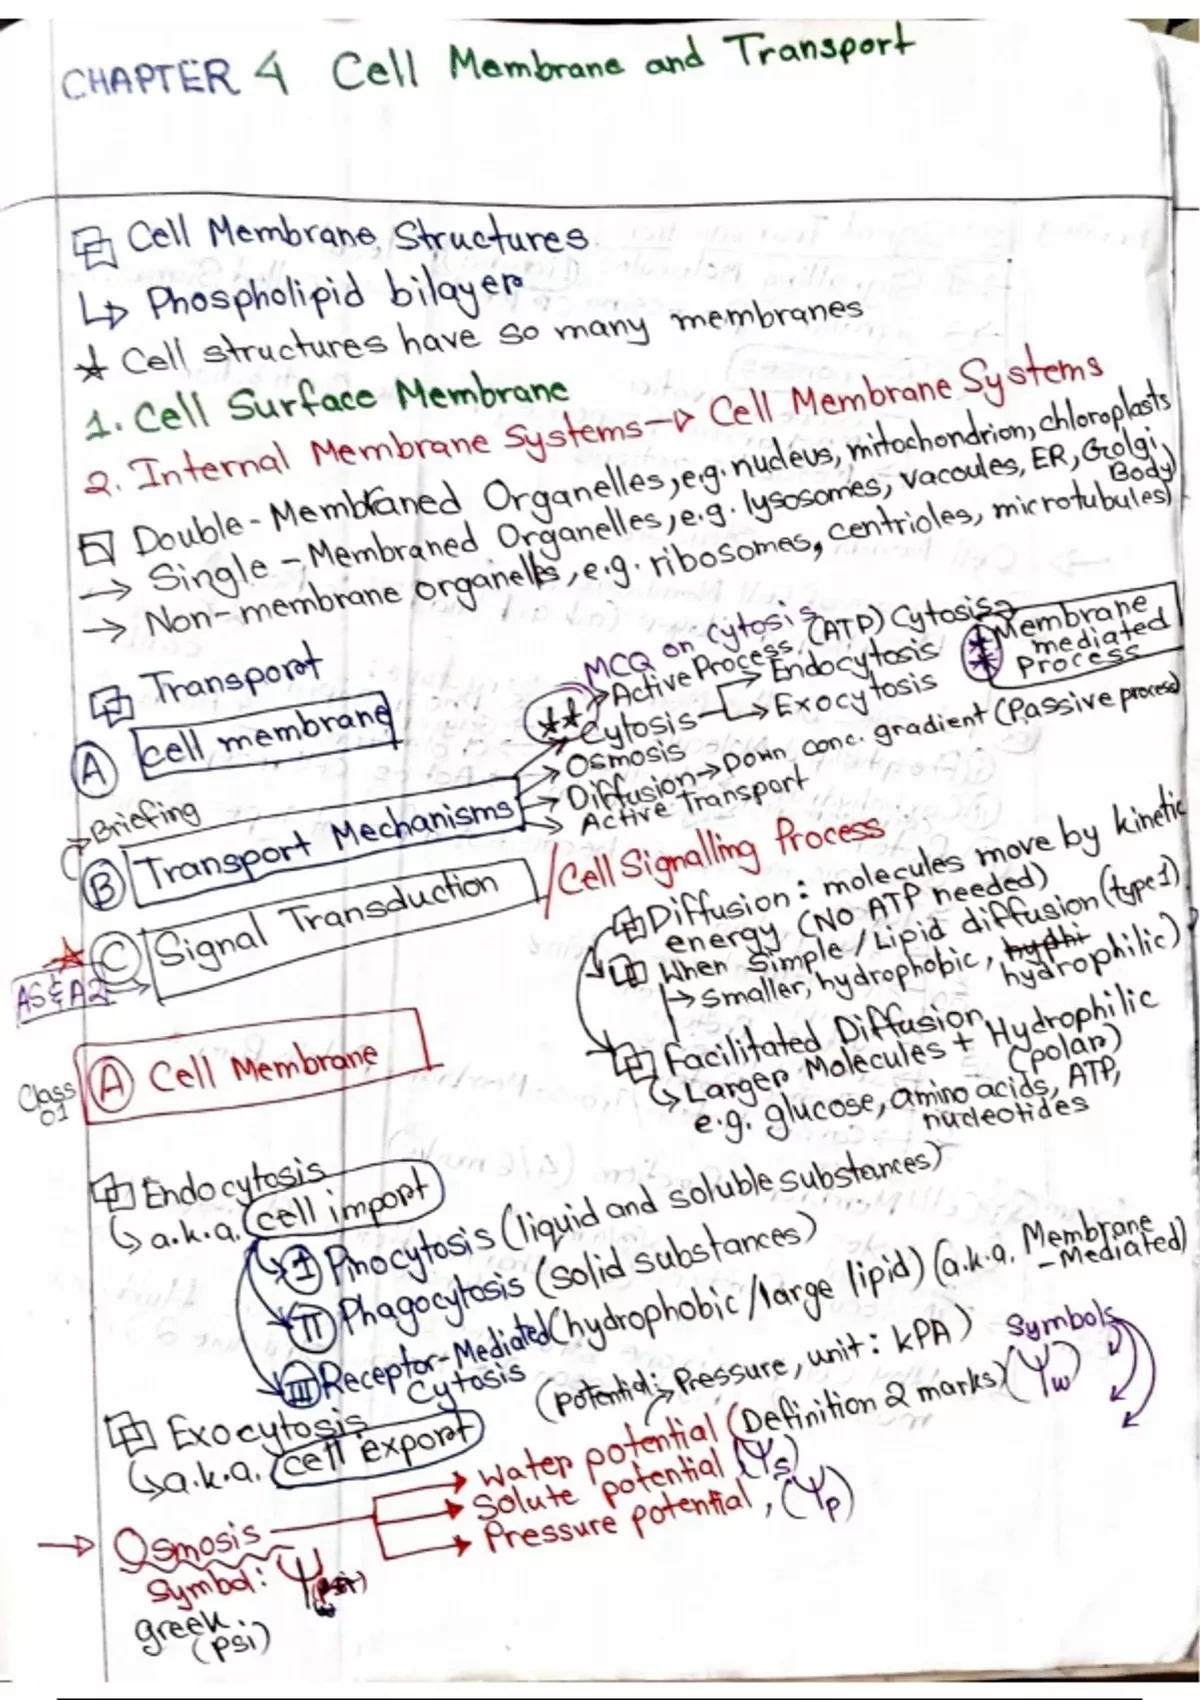 CHAPTER 4 Cell Membrane and Transport
Cell Membrane Structures
↳ Phospholipid bilayer
★ Cell structures have so many membranes
1. Cell Surface Membrane
2. Internal Membrane Systems → Cell Membrane Systems
Double-Membraned Organelles, e.g. nucleus, mitochondrion, chloroplasts
→ Single-Membraned Organelles, e.g. lysosomes, vacoules, ER, Golgi Body
→ Non-membrane organelles, e.g. ribosomes, centrioles, microtubules)
Transport
MCQ on cytosis
Active Process, (ATP) Cytosis →
** Membrane mediated Process
A cell membrane
** Cytosis → Endocytosis
→ Exocytosis
→ Osmosis
→ Diffusion → Down conc. gradient (Passive process)
→ Active Transport
→ Briefing
B Transport Mechanisms
C Signal Transduction / Cell Signalling Process
AS & A2
Diffusion: molecules move by kinetic
energy (NO ATP needed)
When Simple/Lipid diffusion (type 1)
↳ smaller, hydrophobic, hyphi hydrophilic)
Facilitated Diffusion
↳ Larger Molecules + Hydrophilic (polar)
e.g. glucose, amino acids, ATP,
nucleotides
Class 01
A Cell Membrane
Endocytosis
↳ a.k.a. cell import
I Pinocytosis (liquid and soluble substances)
II Phagocytosis (solid substances)
III Receptor-Mediated Cytosis (hydrophobic/large lipid) (a.k.a. Membrane-Mediated)
Exocytosis
↳ a.k.a. cell export
(potential: Pressure, unit: kPA)
Symbols
→ Osmosis
→ Water potential (Definition 2 marks) (Ψw)
→ Solute potential (Ψs)
→ Pressure potential, (Ψp)
Symbol: Ψ (psi)
greek
(psi)